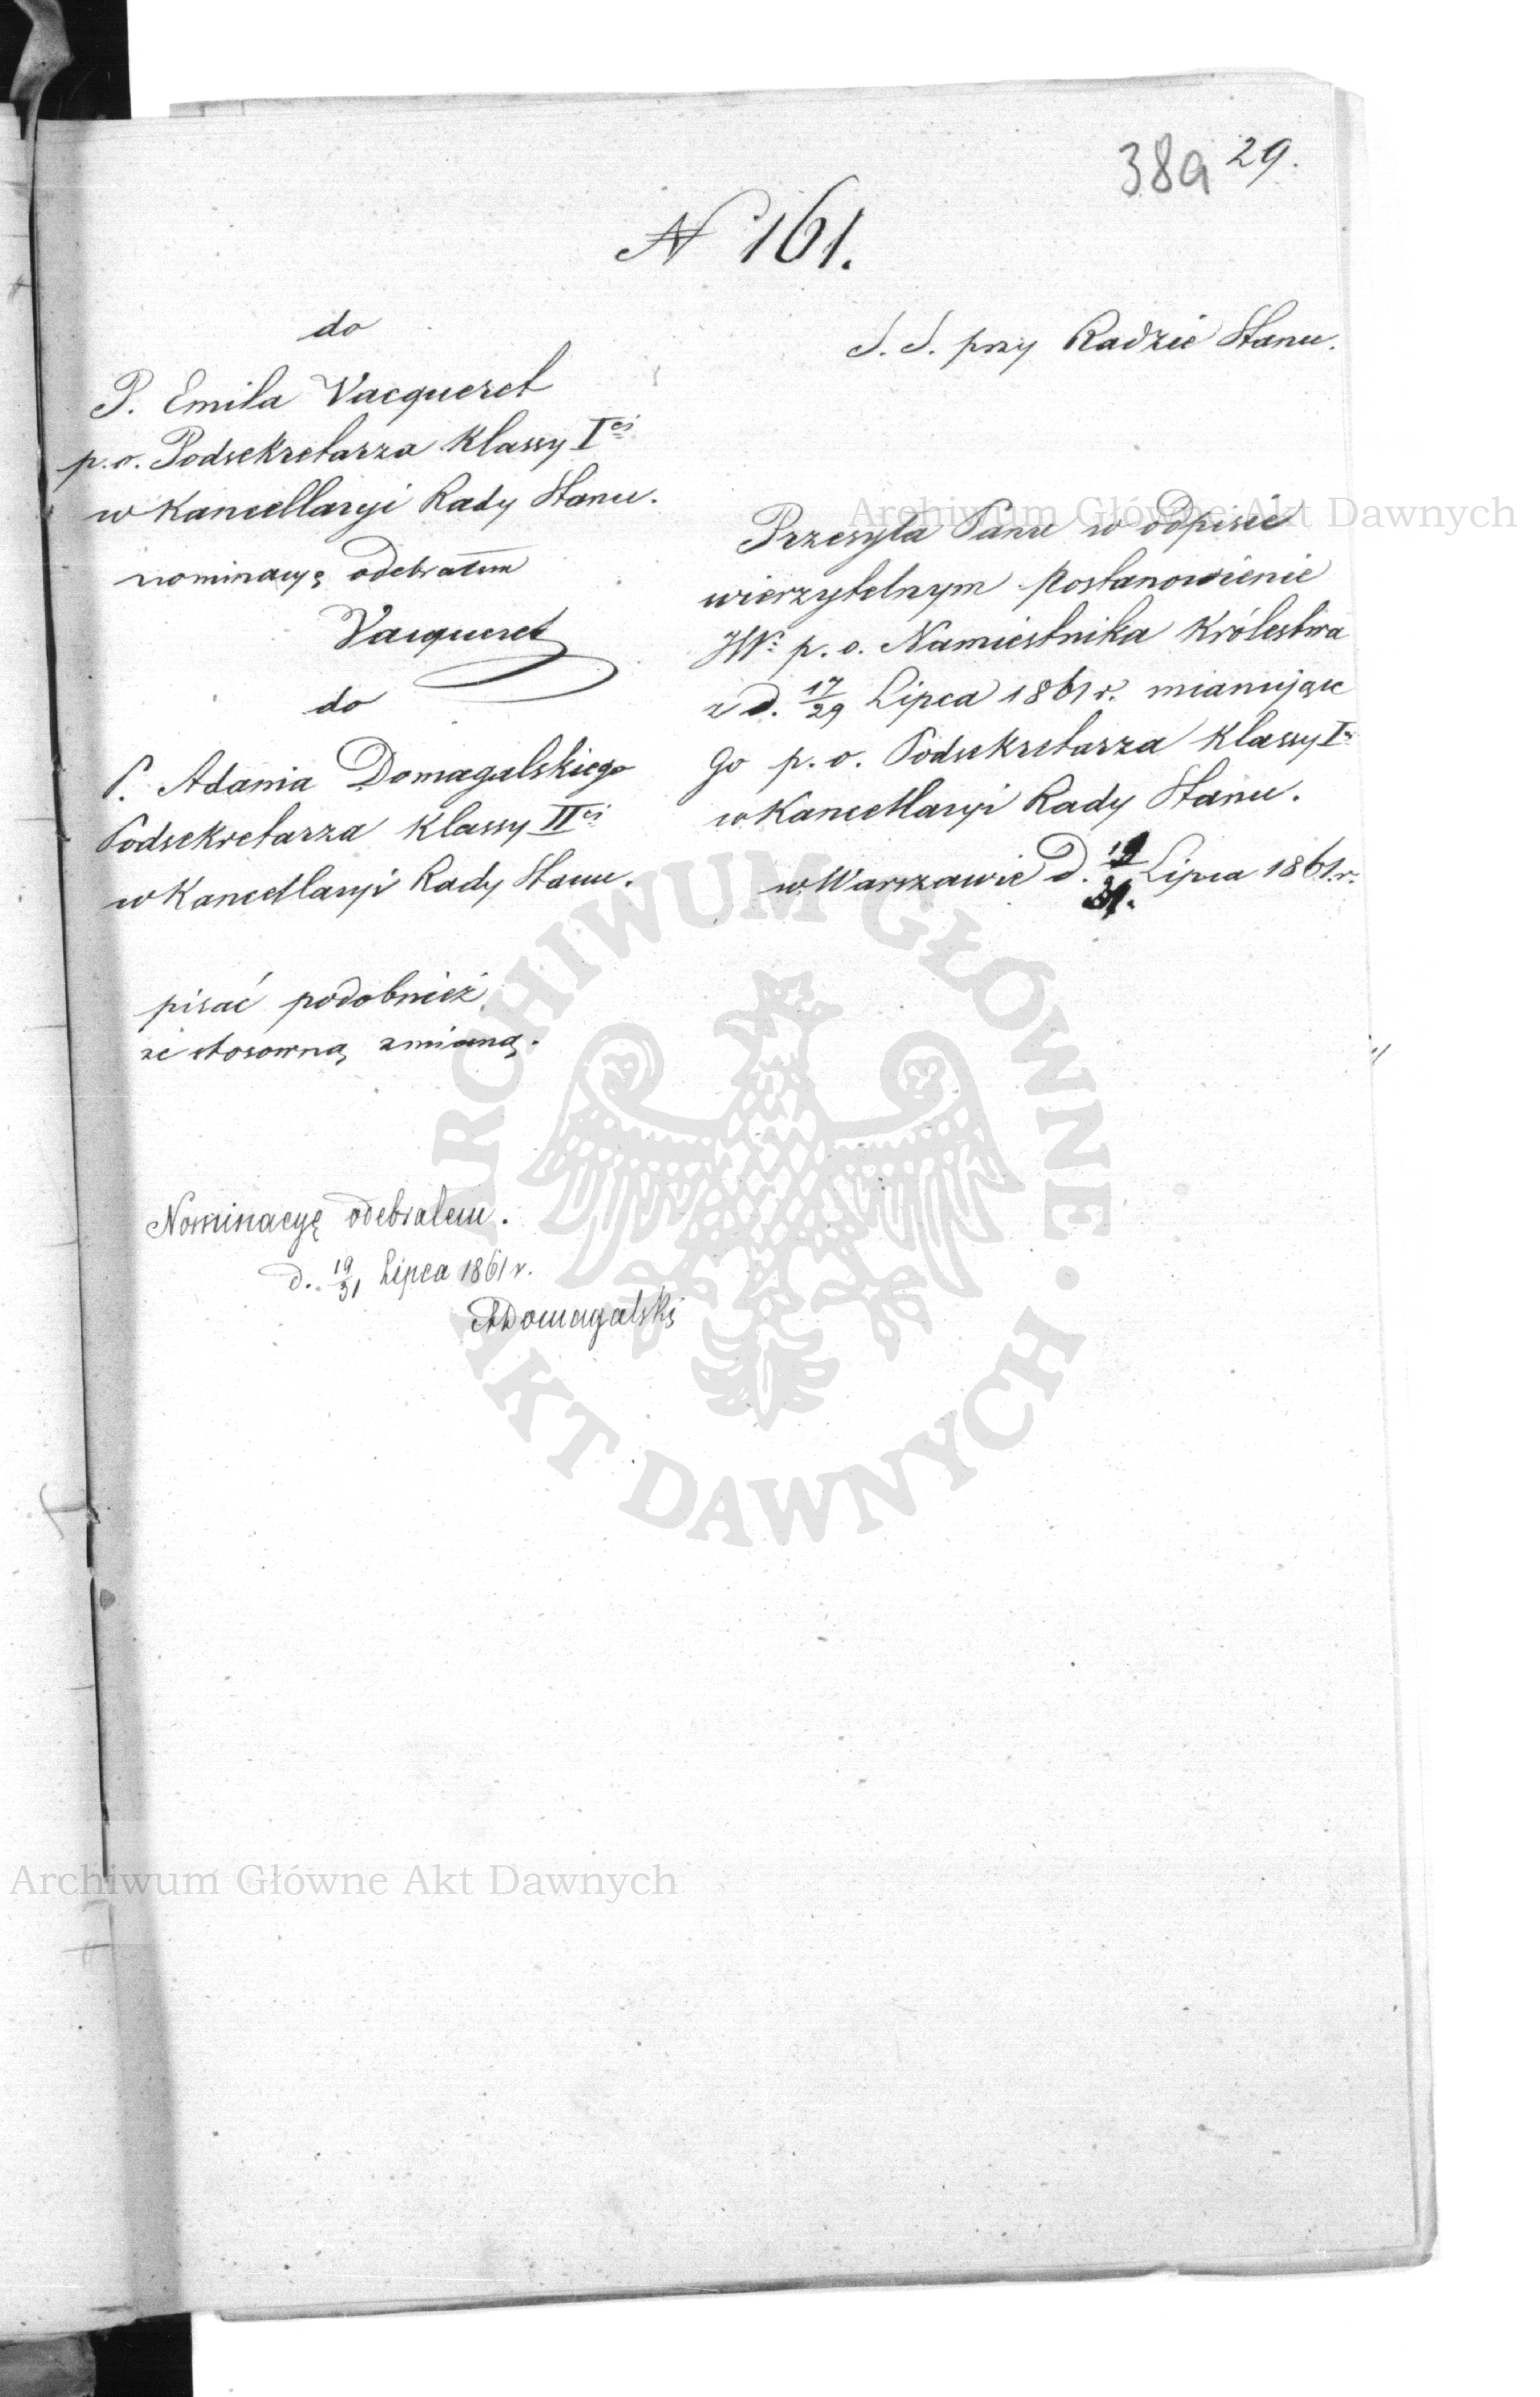 38a 29.
N 161.
do
P. Emila Vacqueret
p.o. Podsekretarza Klassy I ej
w Kancellaryi Rady Stanu.
nominacyę odebrałem
Vacqueret
do
P. Adama Domagalskiego
Podsekretarza Klassy II ej
w Kancellaryi Rady Stanu.
pisać podobnież
ze stosowną zmianą.
Nominacyę odebrałem.
d. 19/31 Lipca 1861 r.
ADomagalski
S. S. przy Radzie Stanu.
Przesyła Panu w odpisie
wierzytelnym postanowienie
JW. p. o. Namiestnika Królestwa
z d. 17/29 Lipca 1861 r. mianujące
Go p. o. Podsekretarza Klassy I ej
w Kancellaryi Rady Stanu.
w Warszawie d. 19/31. Lipca 1861 r.
Archiwum Główne Akt Dawnych
ARCHIWUM GŁÓWNE · AKT DAWNYCH ·
Archiwum Główne Akt Dawnych